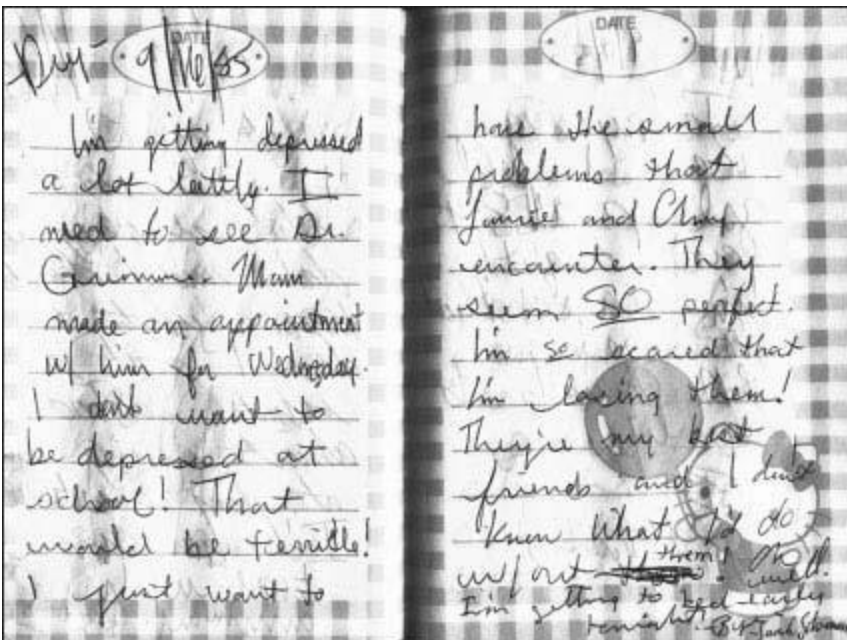 DATE
9/16/85
I'm getting depressed
a lot lattly. I
need to see Dr.
Mom
made an appointment
w/ him for Wednesday.
I don't want to
be depressed at
school! That
would be terrible!
I just want to
DATE
have the small
problems that
and
encounter. They
seem SO perfect.
I'm so scared that
I'm losing them!
They're my best
friends and I don't
know what I'd do
w/out them! Oh well.
I'm getting to bed early
tonight!